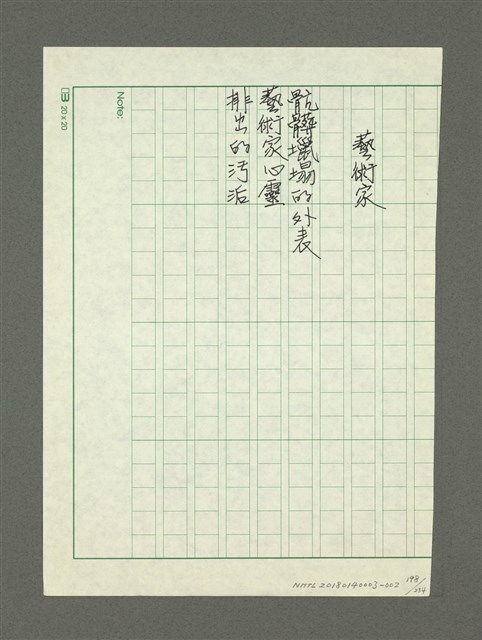 藝術家
骯髒邋塌的外表
藝術家心靈
排出的污垢
Note:
20 x 20
NMTL20180140003-002
198/234